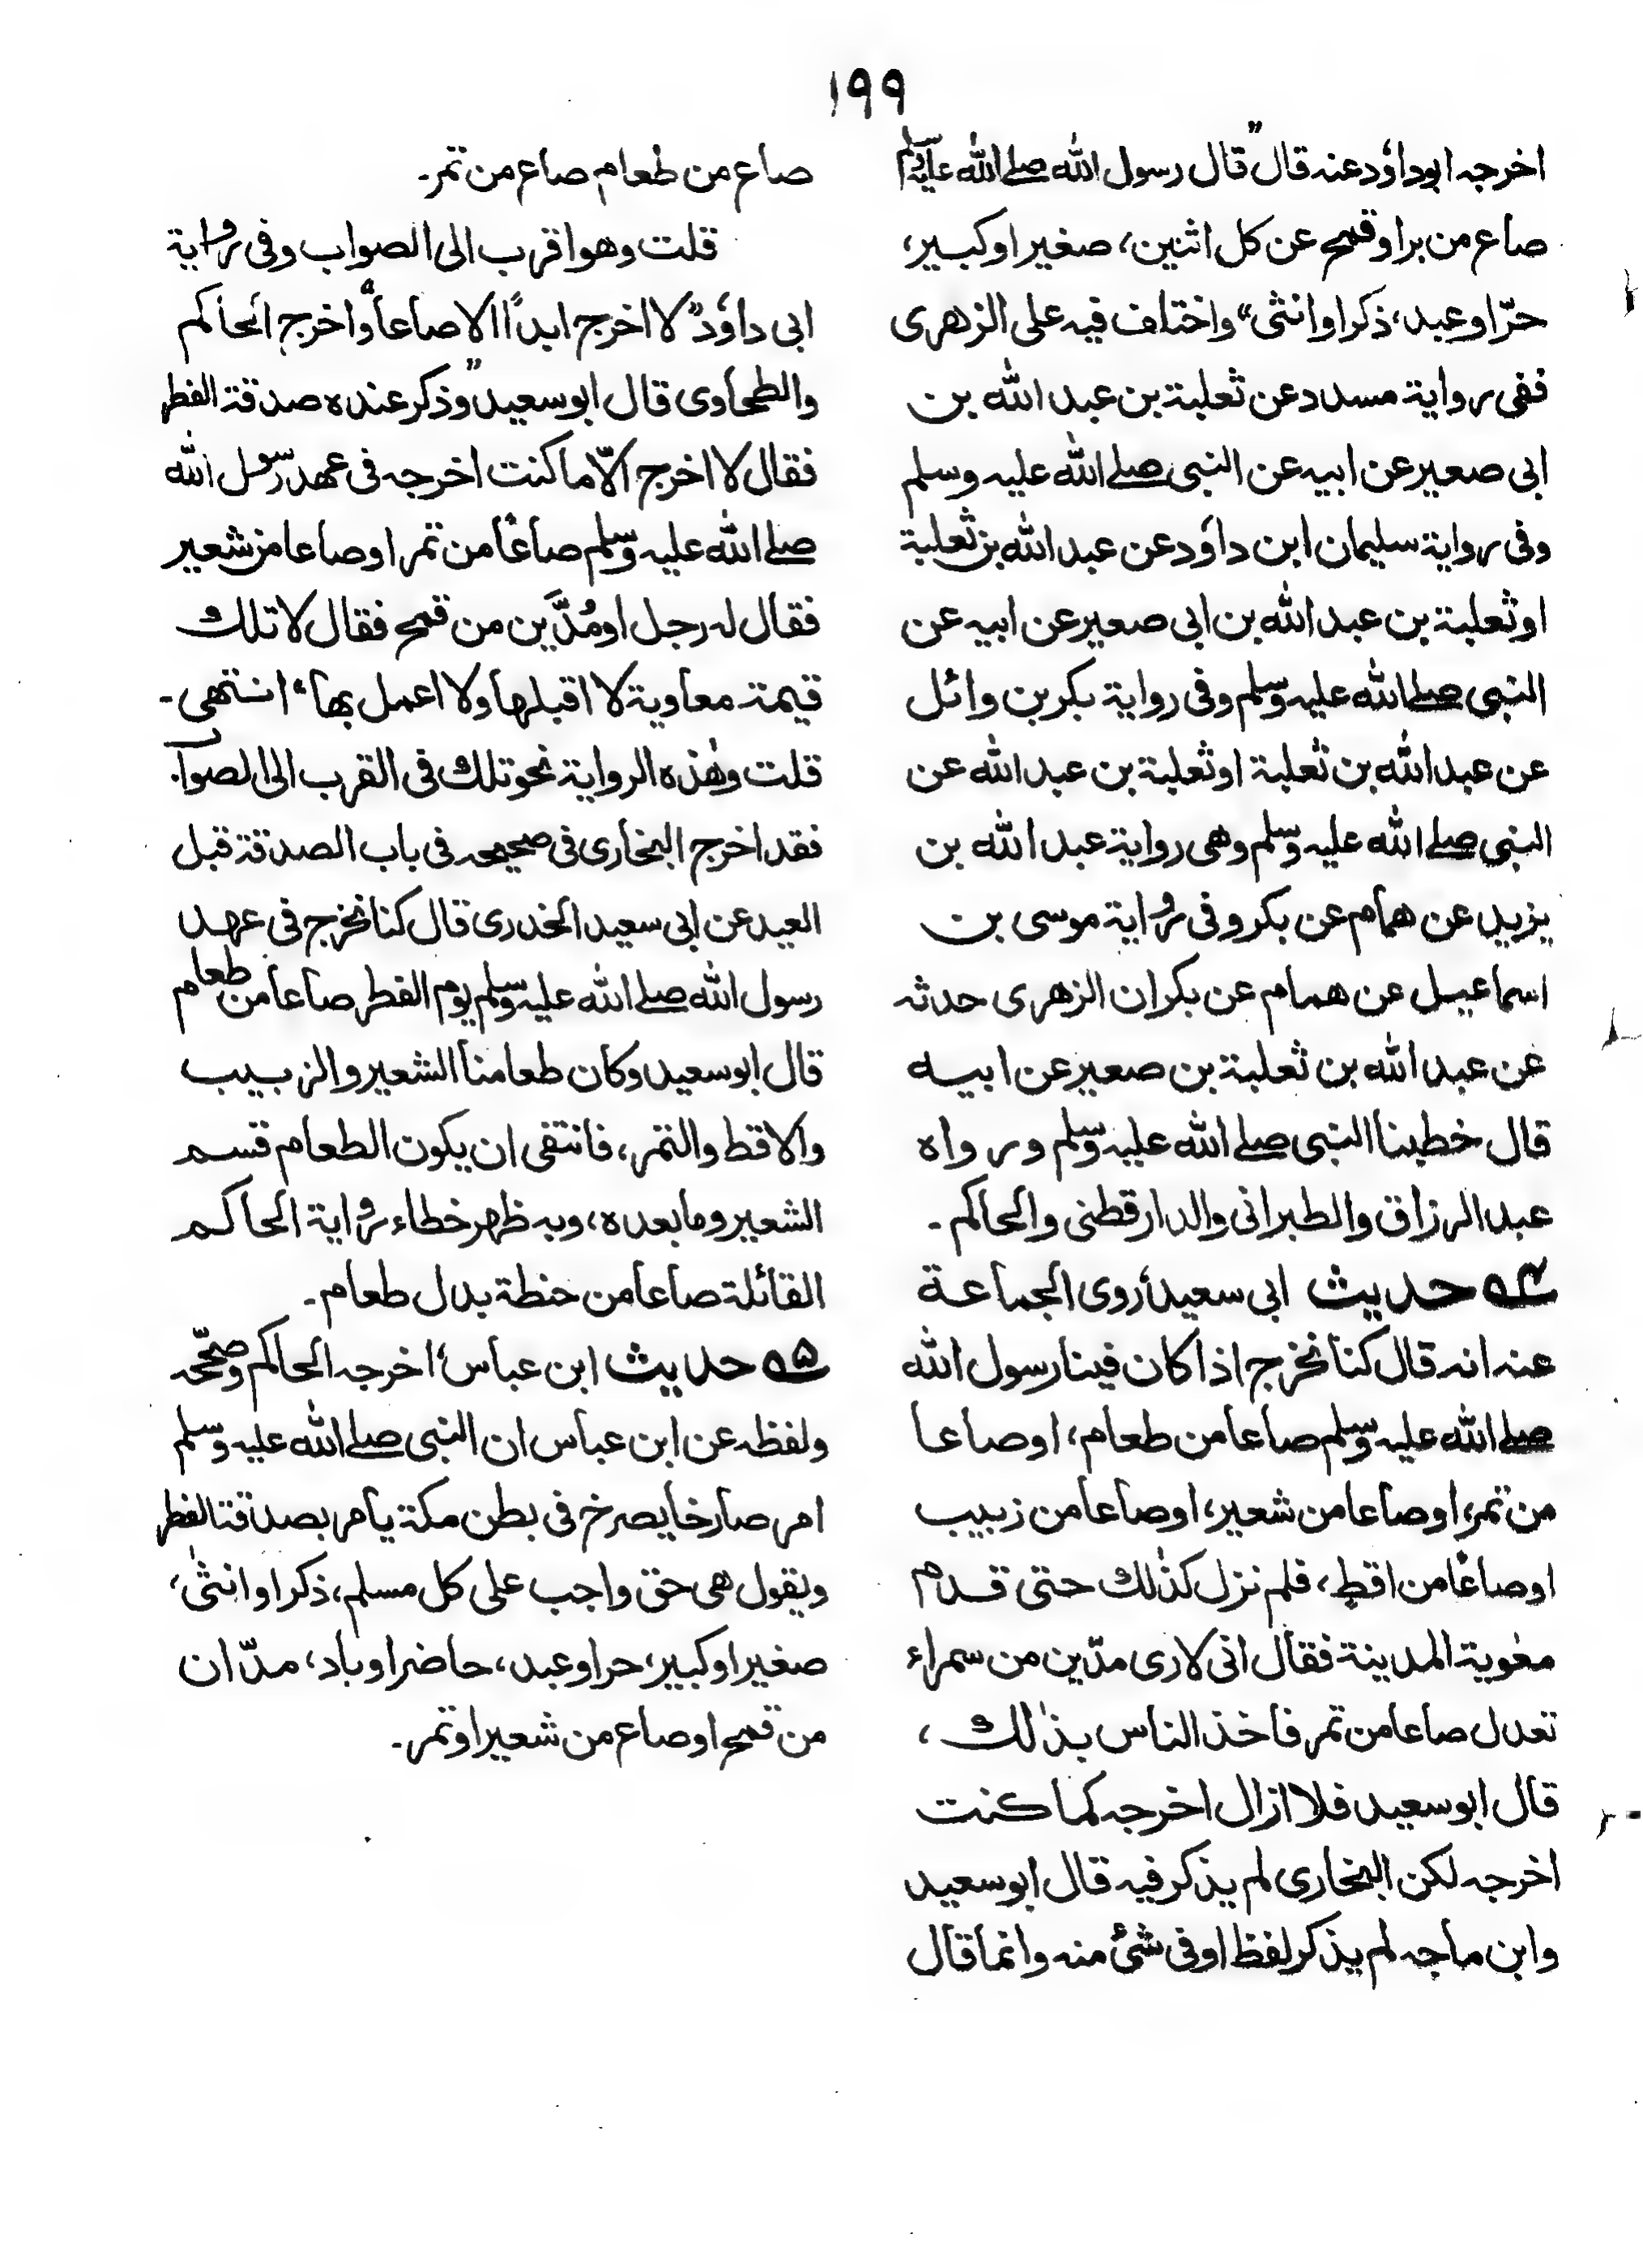 ١٩٩
اخرجه ابوداؤد عنه قال "قال رسول الله صلے الله عليه وسلم
صاع من بر او قمح عن كل اثنين، صغير او كبير،
حرّ او عبد، ذكر او انثى" واختلف فيه على الزهرى
ففى رواية مسدد عن ثعلبة بن عبد الله بن
ابى صعير عن ابيه عن النبى صلے الله عليه وسلم
وفى رواية سليمان ابن داؤد عن عبد الله بن ثعلبة
او ثعلبة بن عبد الله بن ابى صعير عن ابيه عن
النبى صلے الله عليه وسلم وفى رواية بكر بن وائل
عن عبد الله بن ثعلبة او ثعلبة بن عبد الله عن
النبى صلے الله عليه وسلم وهى رواية عبد الله بن
يزيد عن همام عن بكر وفى رواية موسى بن
اسماعيل عن همام عن بكر ان الزهرى حدثه
عن عبد الله بن ثعلبة بن صعير عن ابيه
قال خطبنا النبى صلے الله عليه وسلم ورواه
عبد الرزاق والطبرانى والدارقطنى والحاكم ۔
۵۴ حديث ابى سعيد روى الجماعة
عنه انه قال كنا نخرج اذا كان فينا رسول الله
صلے الله عليه وسلم صاعا من طعام، او صاعا
من تمر، او صاعا من شعير، او صاعا من زبيب
او صاعًا من اقط، فلم نزل كذٰلك حتى قدم
معٰوية المدينة فقال انى لارى مدّين من سمراء
تعدل صاعا من تمر فاخذ الناس بذٰلك ،
قال ابو سعيد فلا ازال اخرجه كما كنت
اخرجه لكن البخارى لم يذكر فيه قال ابو سعيد
وابن ماجه لم يذكر لفظ او فى شئ منه وانما قال
صاع من طعام صاع من تمر۔
قلت وهو اقرب الى الصواب وفى رواية
ابى داؤد "لا اخرج ابدًا الا صاعا" واخرج الحاكم
والطحاوى قال ابو سعيد "وذكر عنده صدقة الفطر
فقال لا اخرج الّا ما كنت اخرجه فى عهد رسول الله
صلے الله عليه وسلم صاعًا من تمر او صاعا من شعير
فقال له رجل او مُدَّين من قمح فقال لا تلك
قيمة معاوية لا اقبلها ولا اعمل بها" انتهى ۔
قلت وهٰذه الرواية نحو تلك فى القرب الى الصواب
فقد اخرج البخارى فى صحيحه فى باب الصدقة قبل
العيد عن ابى سعيد الخدرى قال كنا نخرج فى عهد
رسول الله صلے الله عليه وسلم يوم الفطر صاعا من طعام
قال ابو سعيد وكان طعامنا الشعير والزبيب
والاقط والتمر، فانتفى ان يكون الطعام قسم
الشعير وما بعده، وبه ظهر خطاء رواية الحاكم
القائلة صاعا من حنطة بدل طعام ۔
۵۵ حديث ابن عباس اخرجه الحاكم وصحّحه
ولفظه عن ابن عباس ان النبى صلے الله عليه وسلم
امر صارخا يصرخ فى بطن مكة يامر بصدقة الفطر
ويقول هى حق واجب على كل مسلم، ذكر او انثٰى،
صغير او كبير، حر او عبد، حاضر او باد، مدّان
من قمح او صاع من شعير او تمر۔